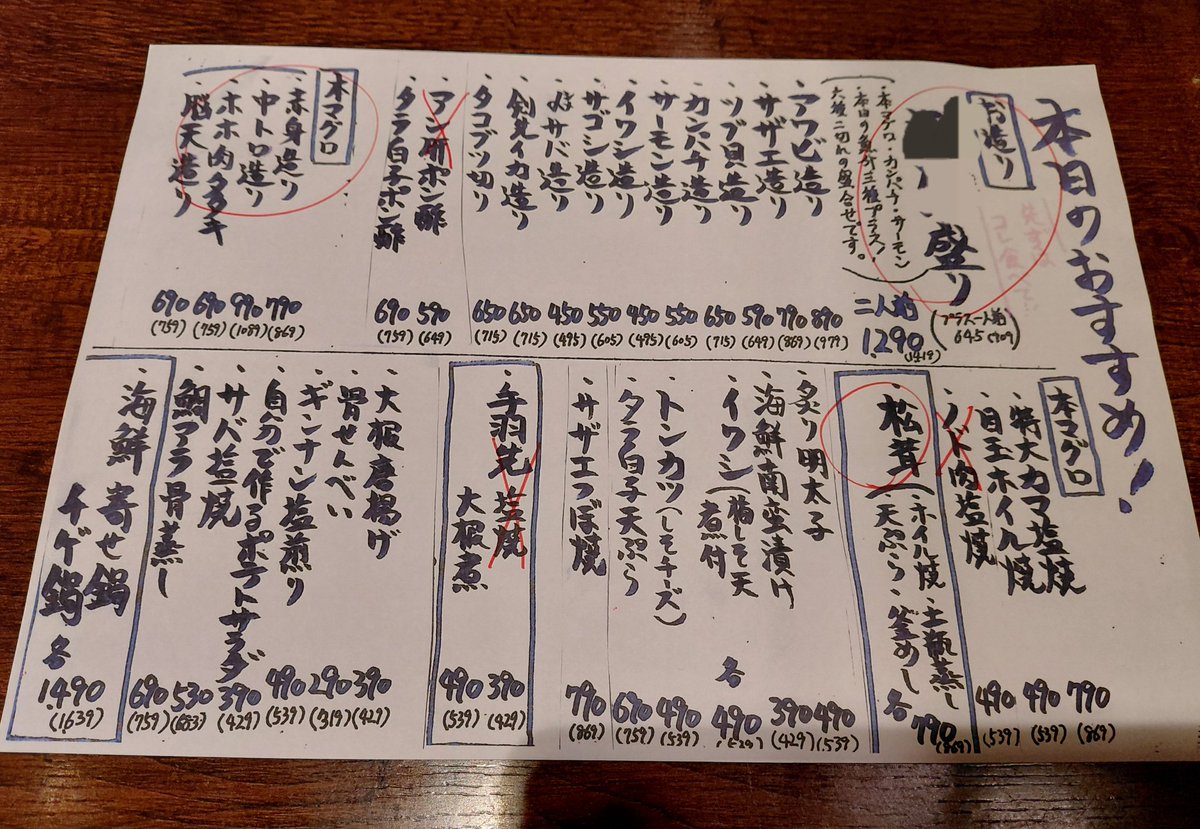 本日のおすすめ！
お造り
盛り
二人前 1290 (1419)
(プラス一人前 645 (709))
・本マグロ・カンパチ・サーモン
・本日の魚が三種プラス！
六種二切れの盛合せです。
・アワビ造り 890 (979)
・サザエ造り 790 (869)
・ツブ貝造り 590 (649)
・カンパチ造り 650 (715)
・サーモン造り 550 (605)
・イワシ造り 450 (495)
・サゴシ造り 550 (605)
・〆サバ造り 450 (495)
・剣先イカ造り 650 (715)
・タコブツ切り 650 (715)
・アン肝ポン酢 590 (649)
・タラ白子ポン酢 690 (759)
本マグロ
・赤身造り 790 (869)
・中トロ造り 990 (1089)
・ホホ肉タタキ 690 (759)
・脳天造り 690 (759)
本マグロ
・特大カマ塩焼 790 (869)
・目玉ホイル焼 490 (539)
・ノド肉塩焼 490 (539)
・松茸
(・ホイル焼・土瓶蒸し
・天ぷら・釜めし 各 790 (869)
・炙り明太子 490 (539)
・海鮮南蛮漬け 390 (429)
・イワシ(梅しそ天
煮付 各 490 (539)
・トンカツ(しそチーズ) 490 (539)
・タラ白子天ぷら 690 (759)
・サザエつぼ焼 790 (869)
・手羽先塩焼 390 (429)
大根煮 490 (539)
・大根唐揚げ 390 (429)
・骨せんべい 290 (319)
・ギンナン塩煎り 490 (539)
・自分で作るポテトサラダ 390 (429)
・サバ塩焼 530 (583)
・鯛アラ骨蒸し 690 (759)
・海鮮 寄せ鍋
チゲ鍋 各 1490 (1639)